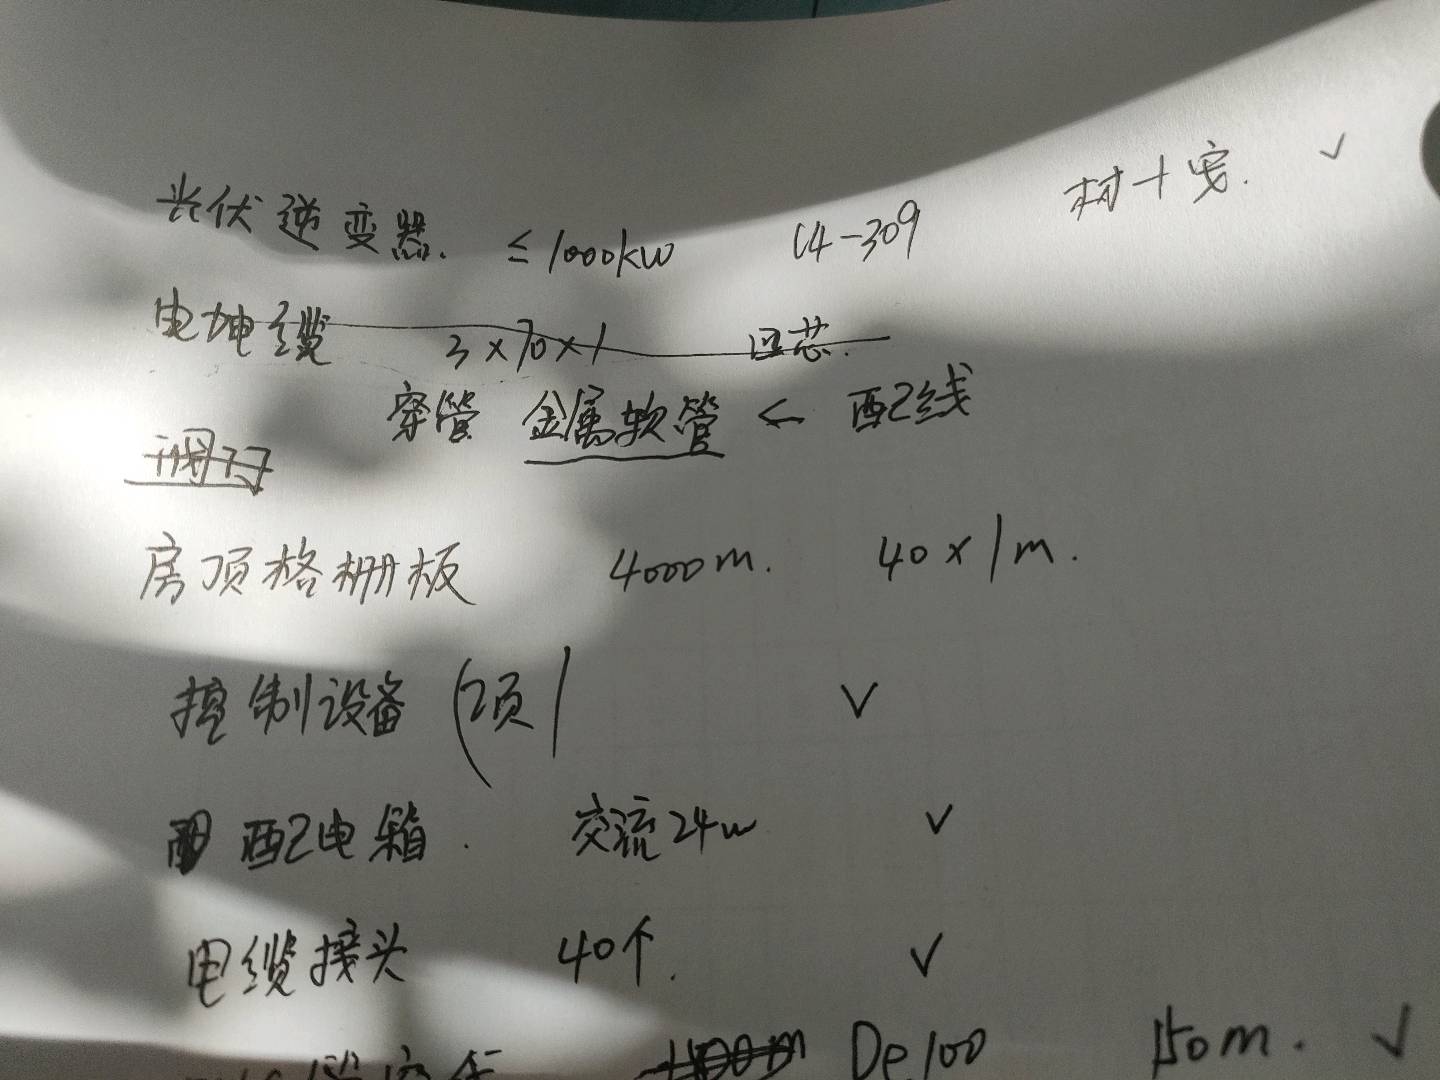 光伏逆变器. ≤1000kw C4-309 树+宽. ✓
电缆 3×70×1 四芯.
穿管 金属软管 ← 配线
房顶格栅板 4000m. 40×1m.
控制设备 (2项) ✓
配电箱. 交流24w ✓
电缆接头 40个. ✓
De100 150m. ✓